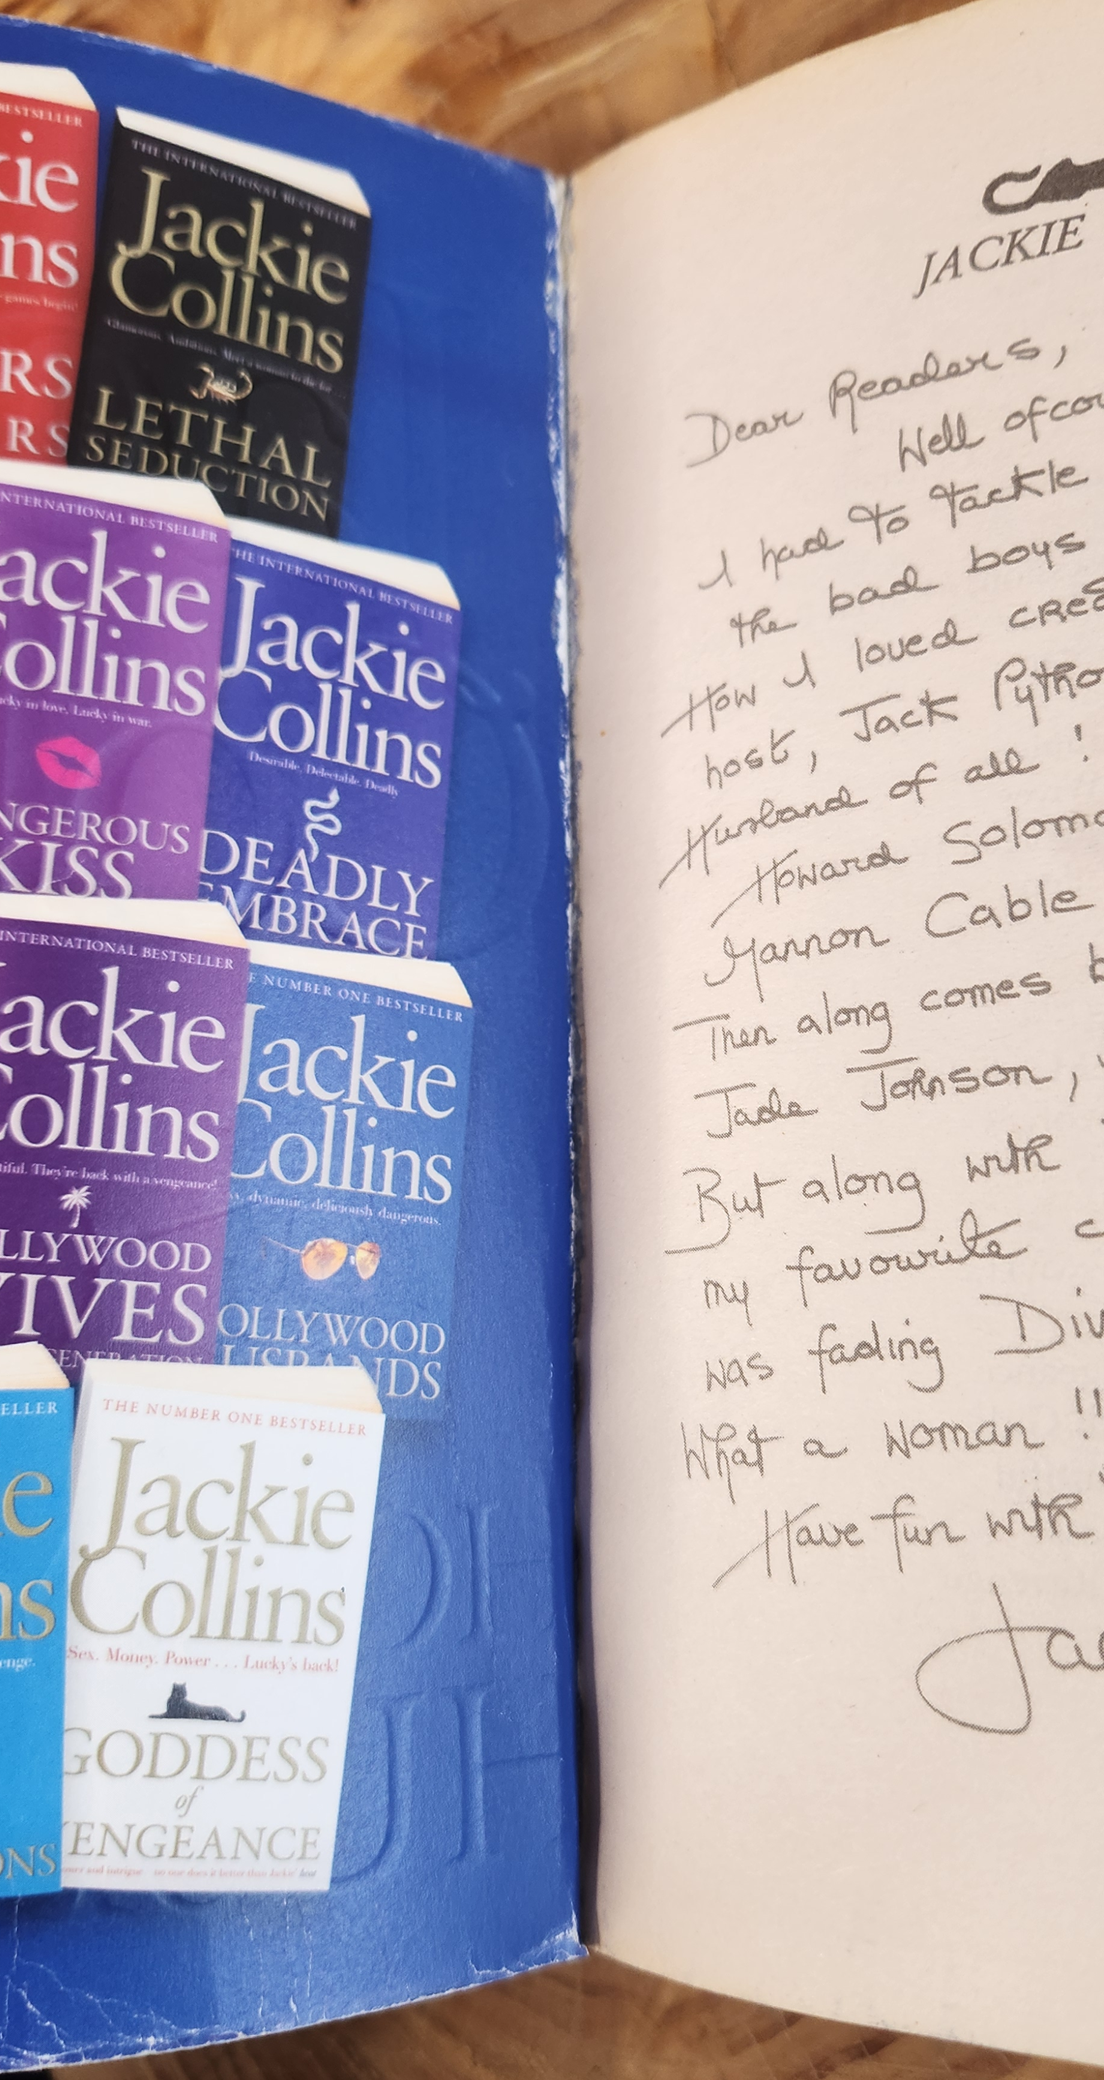 BESTSELLER
kie
ns
games begin!
RS
RS
THE INTERNATIONAL BESTSELLER
Jackie
Collins
Glamorous. Ambitious. Meet a woman to die for...
LETHAL
SEDUCTION
INTERNATIONAL BESTSELLER
ackie
ollins
cky in love. Lucky in war.
NGEROUS
KISS
THE INTERNATIONAL BESTSELLER
Jackie
Collins
Desirable. Delectable. Deadly
DEADLY
EMBRACE
INTERNATIONAL BESTSELLER
ackie
ollins
tiful. They're back with a vengeance!
LLYWOOD
IVES
GENERATION
E NUMBER ONE BESTSELLER
Jackie
Collins
y, dynamic, deliciously dangerous.
OLLYWOOD
USBANDS
ELLER
e
ns
enge.
ONS
THE NUMBER ONE BESTSELLER
Jackie
Collins
Sex. Money. Power . . . Lucky's back!
GODDESS
of
VENGEANCE
power and intrigue no one does it better than Jackie' heat
JACKIE
Dear Readers,
Well ofcou
I had to tackle
the bad boys
How I loved crea
host, Jack Pytho
Husband of all !
Howard Solomo
Mannon Cable
Then along comes b
Jade Johnson,
But along with
my favourite c
was fading Div
What a woman !!
Have fun with
Jac